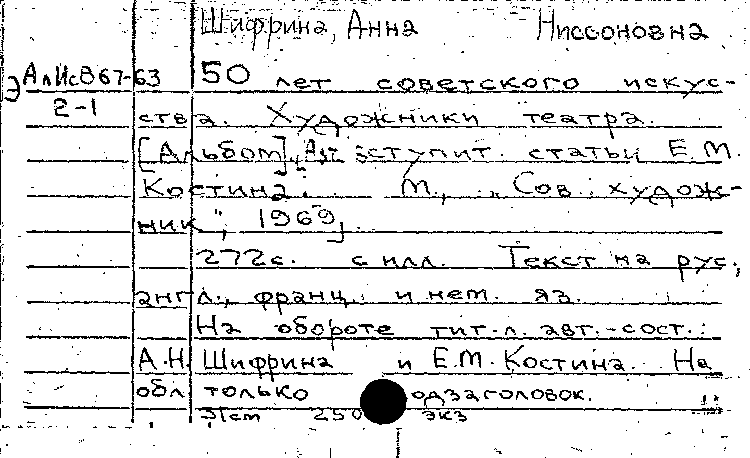 Шифрина, Анна Ниссоновна
АлИсВ67-63 50 лет советского искус-
2-1 ства. Художники театра.
[Альбом]. вступит. статьи Е.М.
Костина. М., „Сов. худож-
ник", 1969.
272с. с илл. Текст на рус.,
англ., франц. и нем. яз.
На обороте тит. л. авт.-сост.:
А.Н. Шифрина и Е.М. Костина. На
обл только одзаголовок.
250 экз